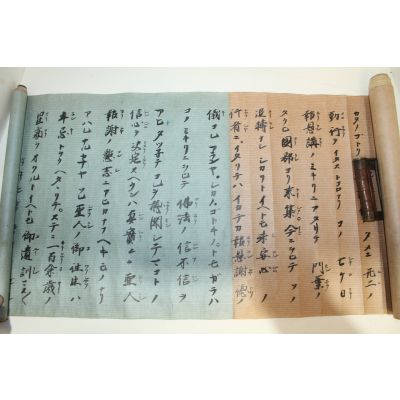 カタノゴトク
タメニ 无二ノ
勤行ヲイタストコロナリ コノ 七ケ日
報恩講ノミキリニアタリテ 門葉ノ
タクヒ 國郡ヨリ来集 今ニヲヒテソノ
退轉ナシ シカリトイヘトモ 未安心ノ
行者ニイタリテハ イカテカ報恩謝徳ノ
儀コレアランヤ シカノゴトキノトモガラハ
コノミキリニヲヒテ 佛法ノ信不信ヲ
アヒタツネテ コレヲ聴聞シテマコトノ
信心ヲ決定スヘクンハ真實〻〻聖人
報謝ノ懇志ニアヒカナフヘキモノナリ
アハレナルカナヤ ソレ聖人ノ御往生ハ
年忌トヲクヘタヽリテ ステニ一百余歳ノ
星霜ヲオクルトイヘトモ 御遺訓マス〳〵